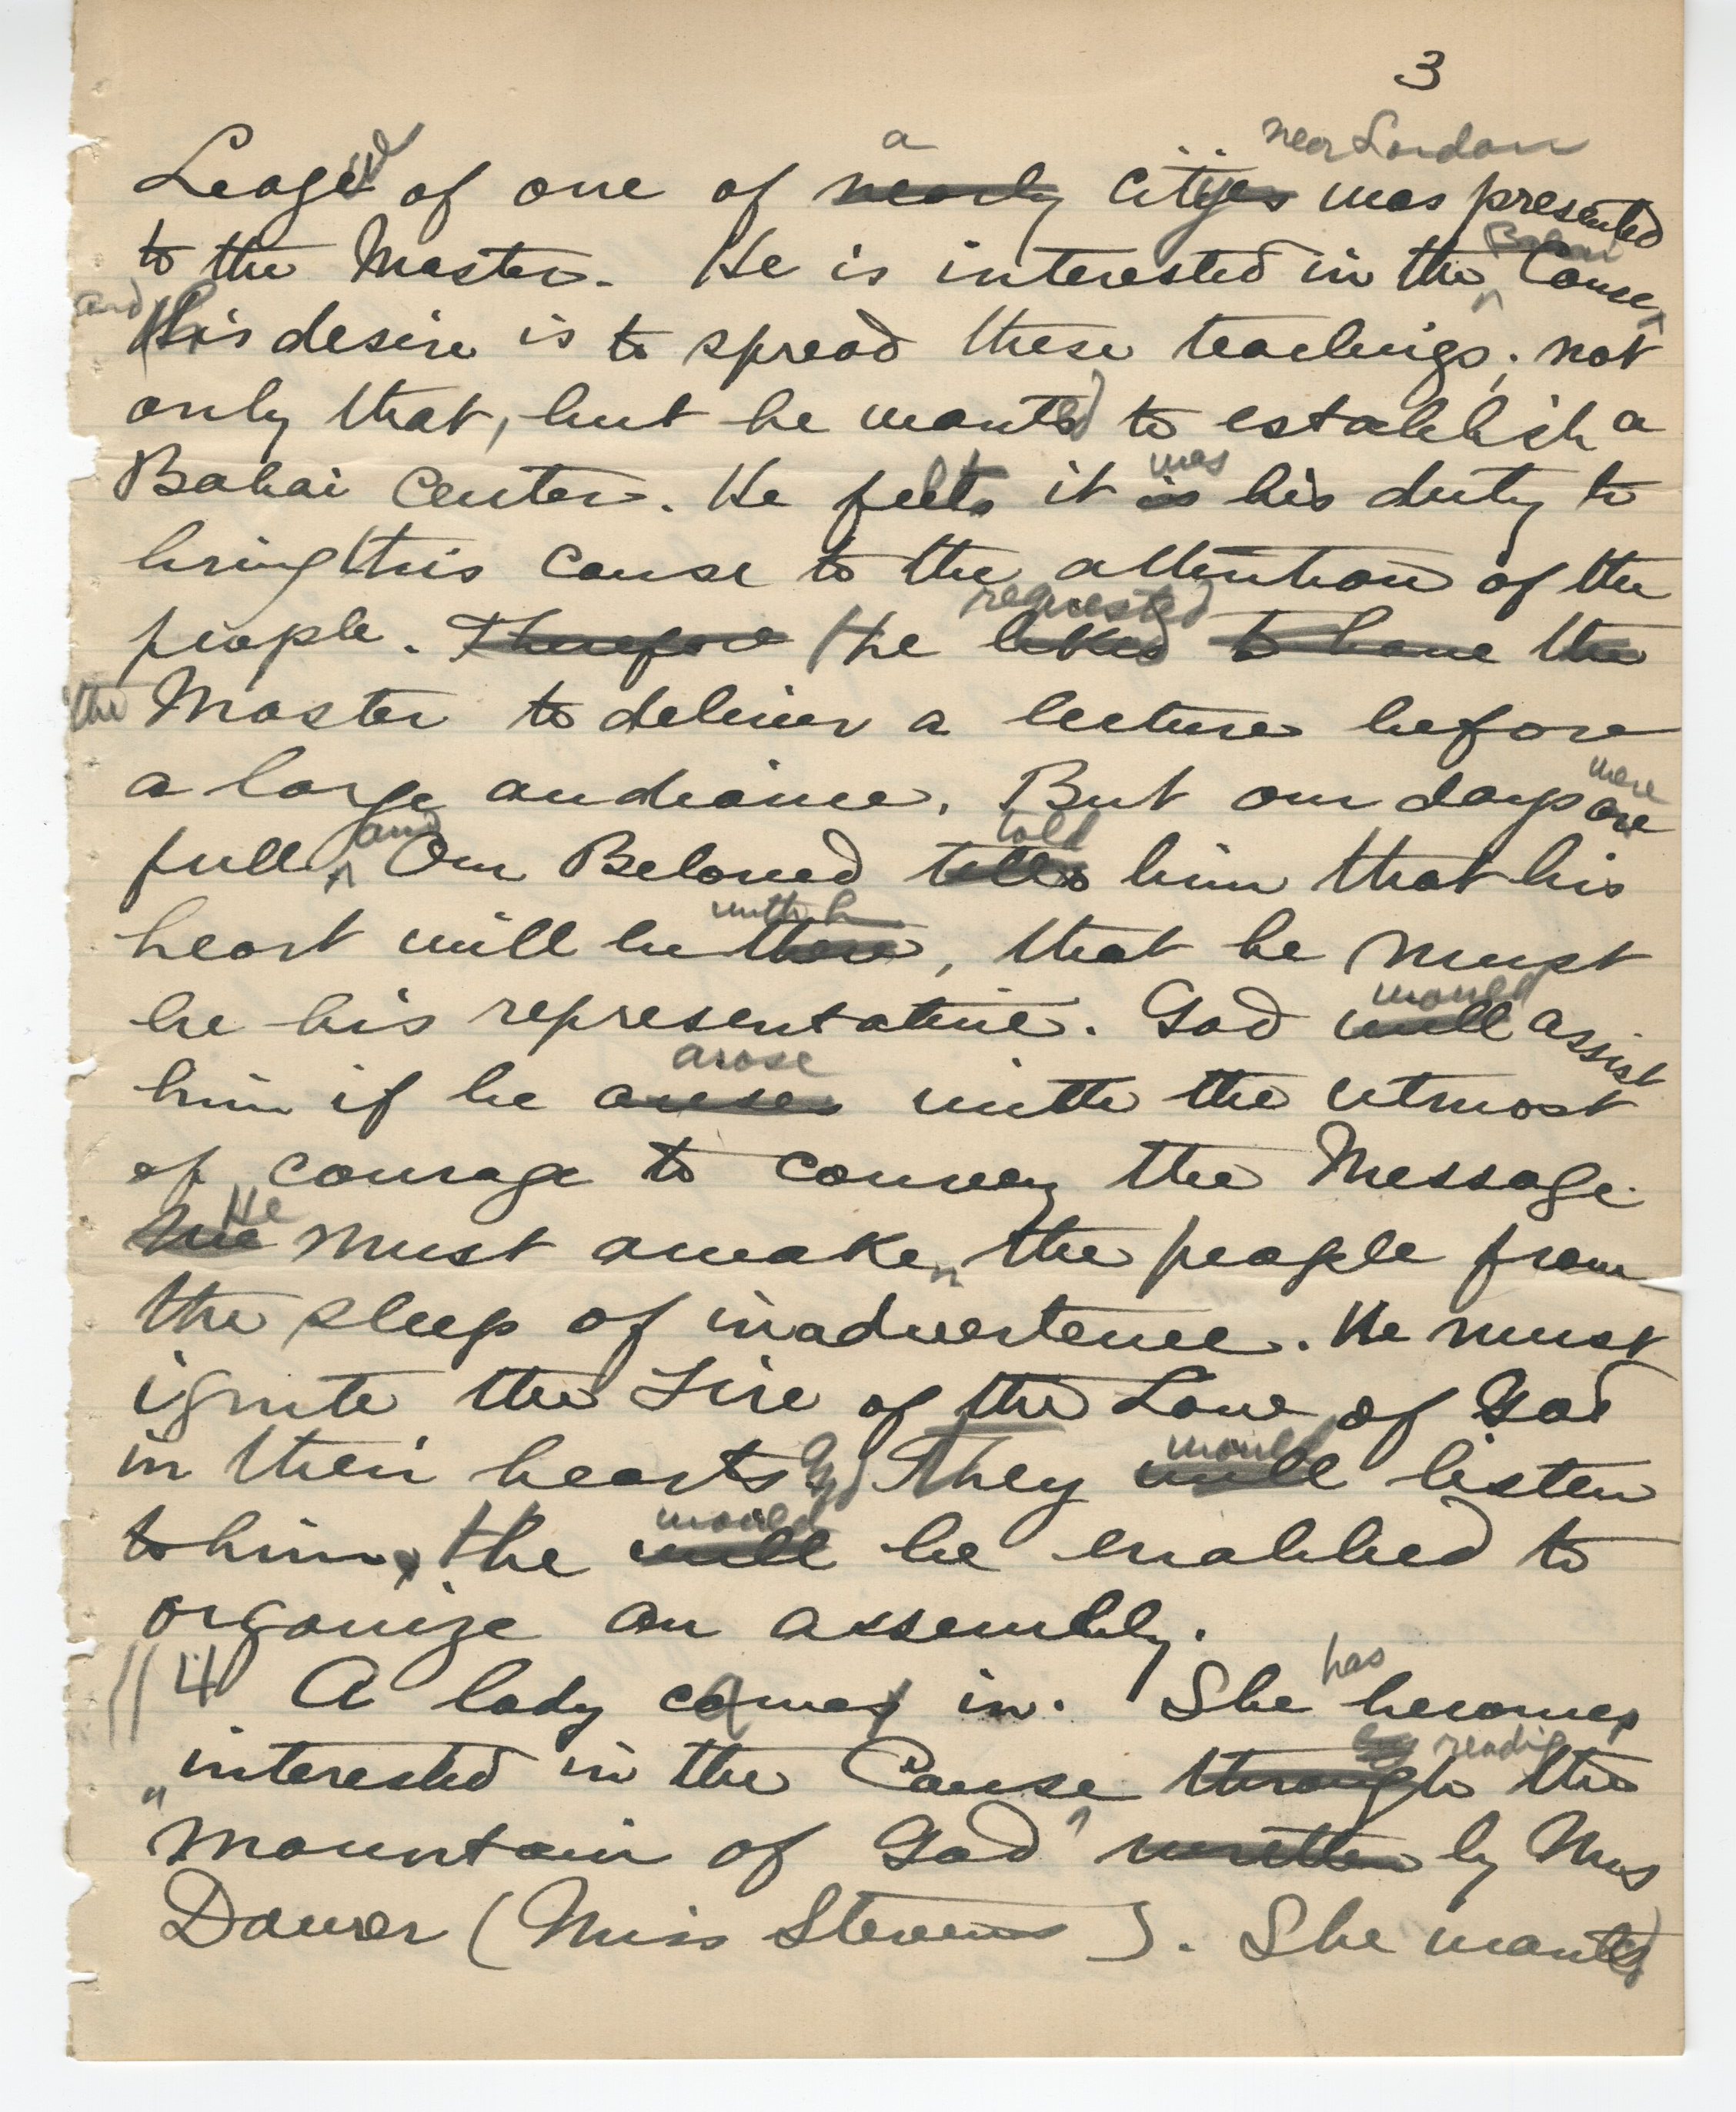 3
a near London
League of one of nearly cityies was presented
to the Master. He is interested in the Bahai Cause,
and his desire is to spread these teachings; not
only that, but he wanted to establish a
Bahai Center. He felt it is was his duty to
bring this cause to the attention of the
requested
people. Therefore He liked to have the
the Master to deliver a lecture before
a large audiance. But our days are were
full, and Our Beloved tells told him that his
heart will be there with h, that he must
be his representative. God will would assist
him if he arises arose with the utmost
of courage to convey the Message.
He must awaken the people from
the sleep of inadvertence. He must
ignite the Fire of the Love of God
in their hearts. They will would listen
to him, he will would be enabled to
organize an assembly.
4 A lady comes in. She has becomes
interested in the Cause through by reading the
"Mountain of God" written by Mrs
Dawer (Miss Stevens). She wanted